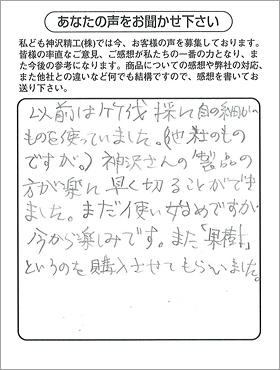 あなたの声をお聞かせ下さい
私ども神沢精工(株)では今、お客様の声を募集しております。
皆様の率直なご意見、ご感想が私たちの一番の力となり、ま
た今後の参考になります。商品についての感想や弊社の対応、
また他社との違いなど何でも結構ですので、感想を書いてお
送り下さい。
以前は竹伐採に目の細かい
ものを使っていました。(他社のもの
ですが。)神沢さんの製品の
方が楽に早く切ることができ
ました。まだ使い始めですが
今から楽しみです。また「果樹」
というのを購入させてもらいました。